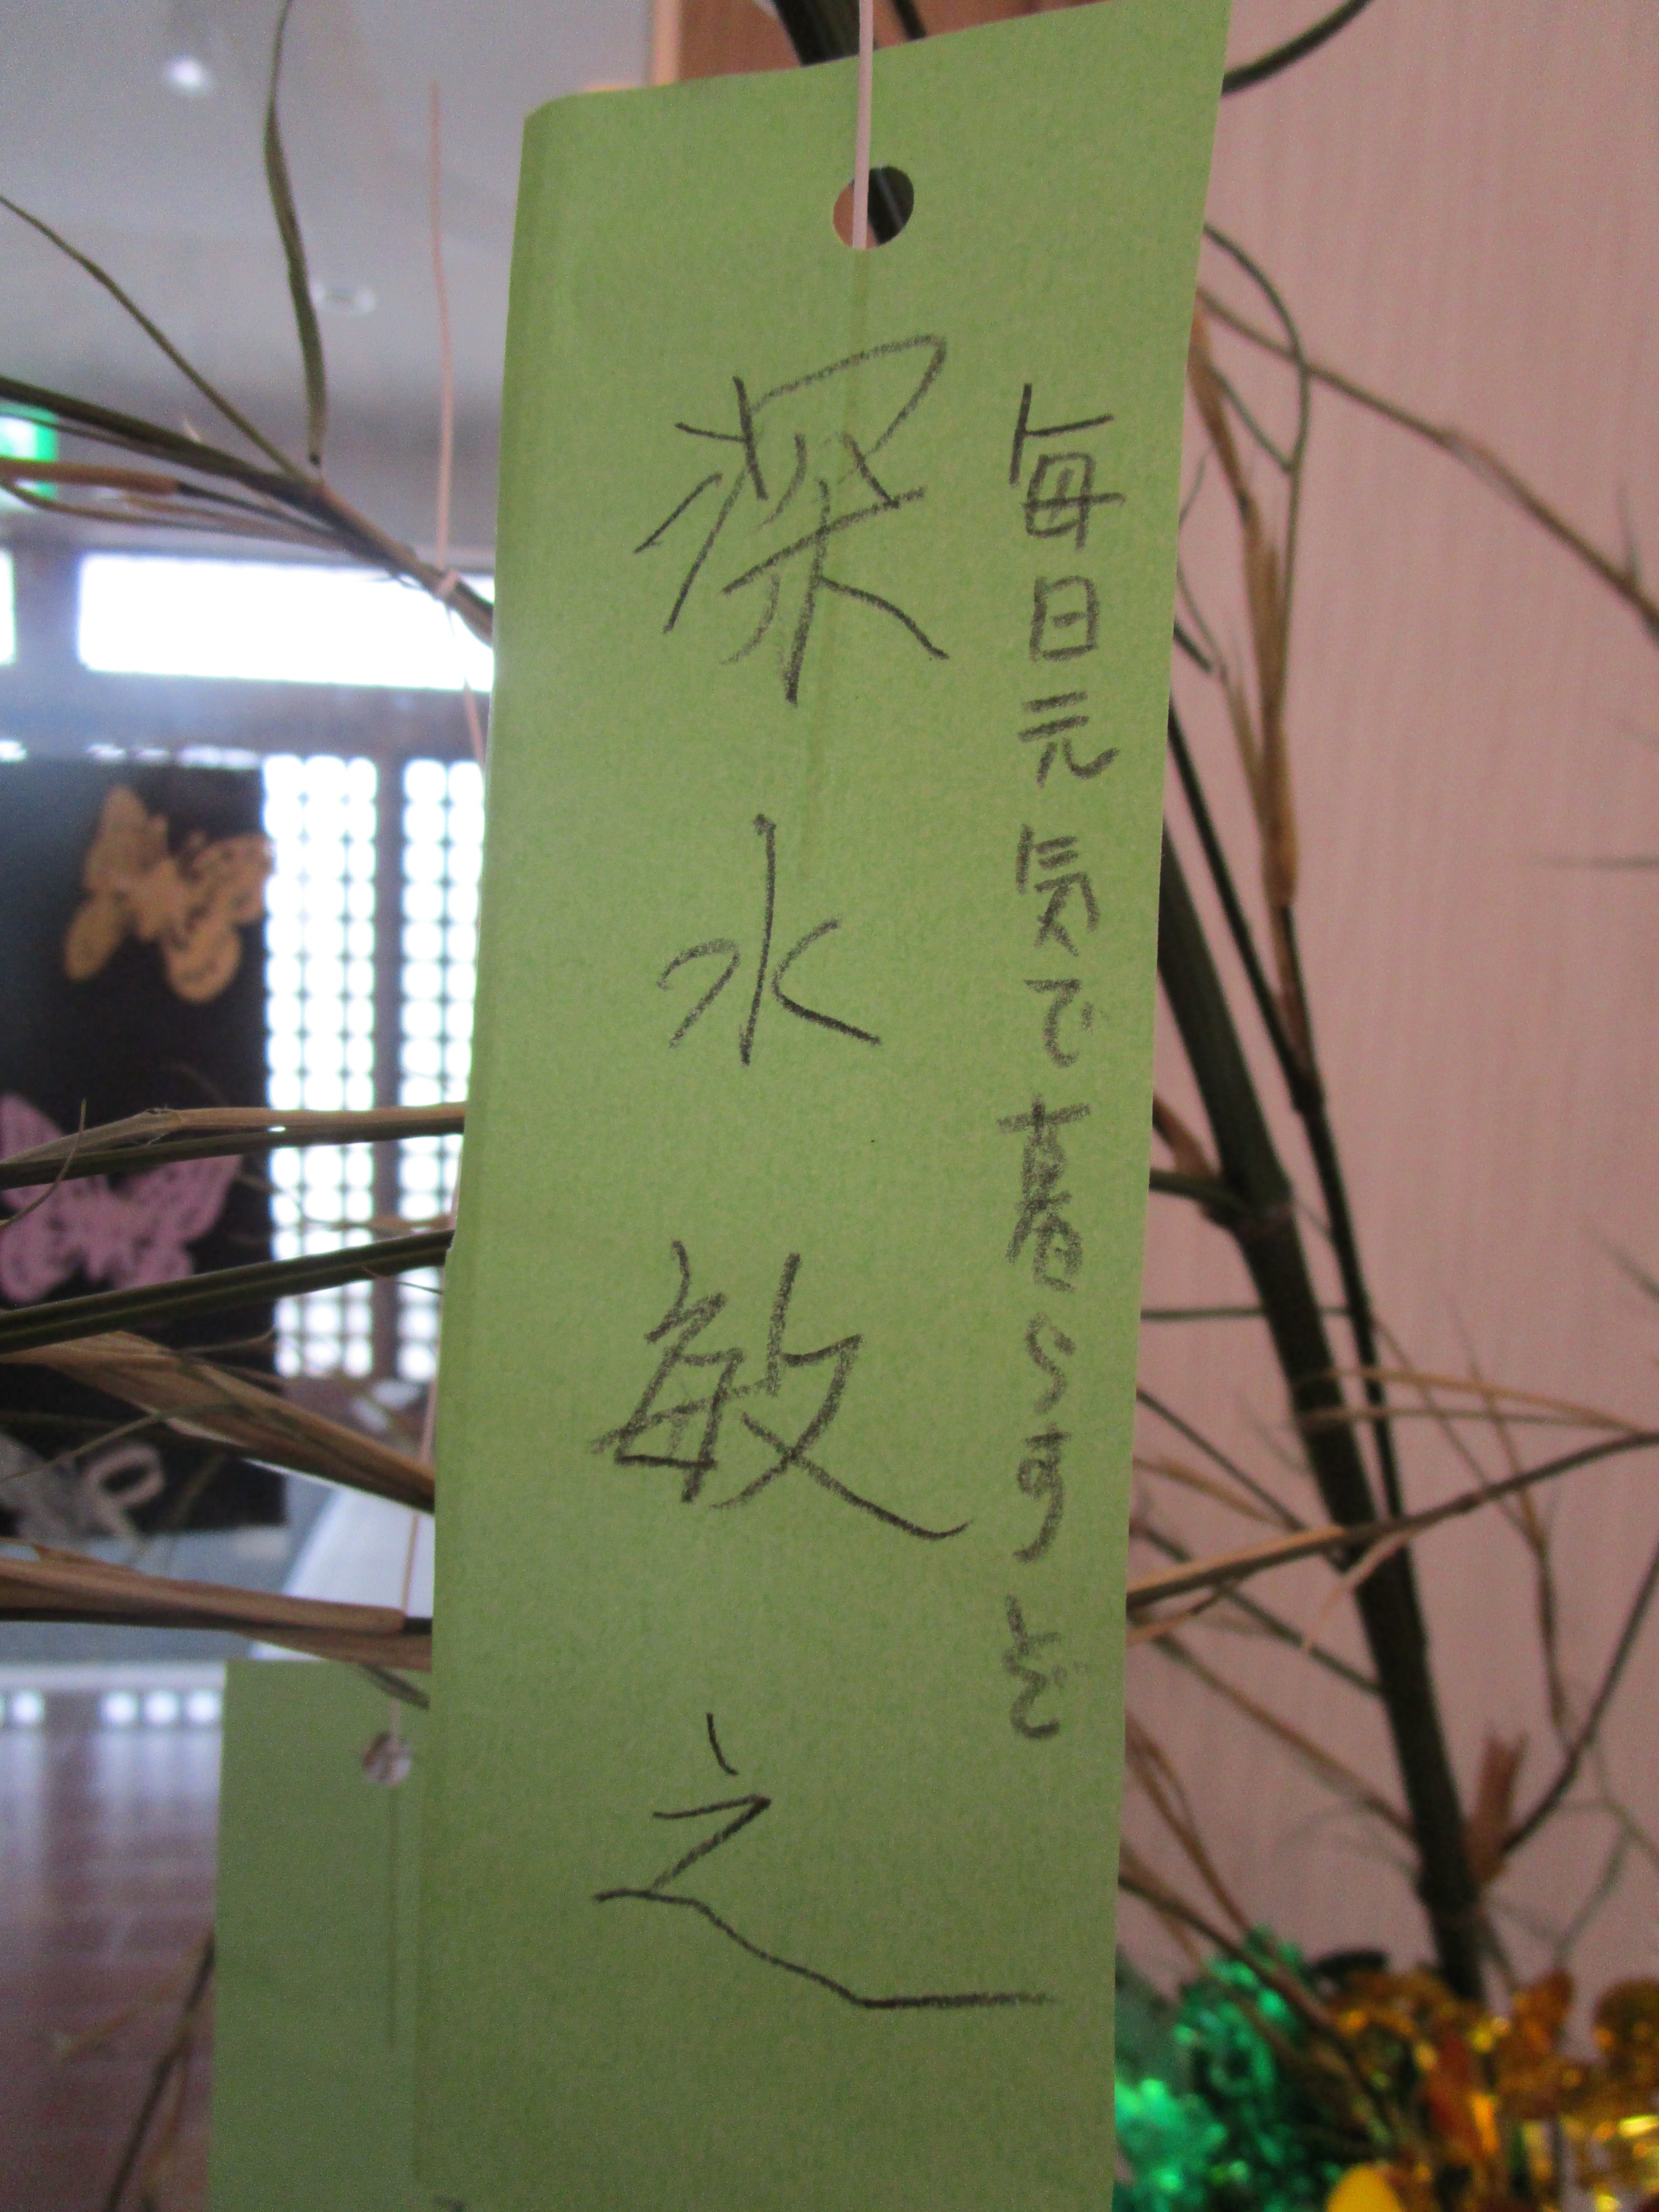 毎日元気で暮らすぞ
深水敏之